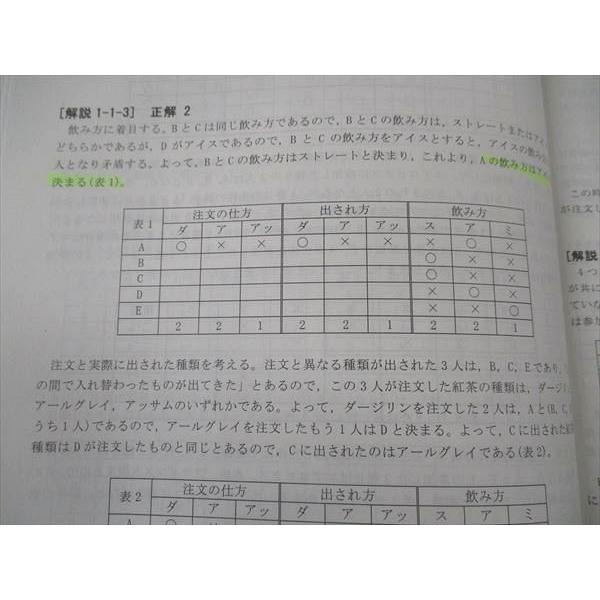 [解説 1-1-3] 正解 2
飲み方に着目する。BとCは同じ飲み方であるので，BとCの飲み方は，ストレートまたはアイ
どちらかであるが，Dがアイスであるので，BとCの飲み方をアイスとすると，アイスの飲み
人となり矛盾する。よって，BとCの飲み方はストレートと決まり，これより，Aの飲み方はア
決まる(表1)。
表1 注文の仕方 出され方 飲み方
ダ ア アッ ダ ア アッ ス ア ミ
A ○ × × ○ × × × ○ ×
B ○ × ×
C ○ × ×
D × ○ ×
E × × ○
2 2 1 2 2 1 2 2 1
注文と実際に出された種類を考える。注文と異なる種類が出された3人は，B，C，Eであり，
の間で入れ替わったものが出てきた」とあるので，この3人が注文した紅茶の種類は，ダージ
アールグレイ，アッサムのいずれかである。よって，ダージリンを注文した2人は，Aと(B，C
うち1人)であるので，アールグレイを注文したもう1人はDと決まる。よって，Cに出された
種類はDが注文したものと同じとあるので，Cに出されたのはアールグレイである(表2)。
表2 注文の仕方 出され方 飲み方
ダ ア アッ ダ ア アッ ス ア ミ
この時
が注文し
[解説
4つ
が共に
ていな
は参か